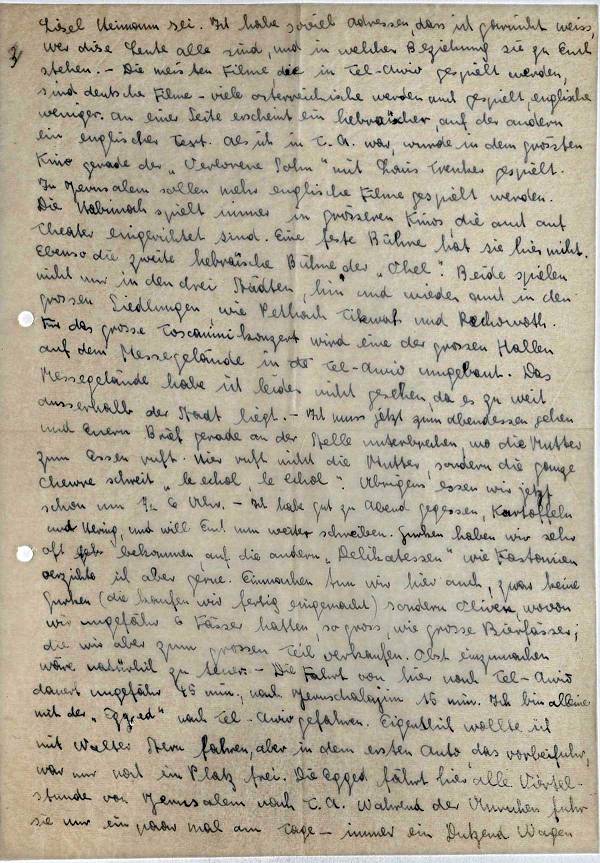 3)
Lisel Neimann sei. Ich habe soviel Adressen, dass ich garnicht weiss,
wer diese Leute alle sind, und in welcher Beziehung sie zu Euch
stehen. – Die meisten Filme die in Tel-Awiw gespielt werden,
sind deutsche Filme – viele österreichische werden auch gespielt, englische
weniger. An einer Seite erscheint ein hebräischer, auf der andern
ein englischer Text. Als ich in T.A. war, wurde in dem grössten
Kino gerade der „Verlorene Sohn" mit Louis Trenker gespielt.
In Jerusalem sollen mehr englische Filme gespielt werden.
Die Habimah spielt immer in grösseren Kinos, die auch auf
Theater eingerichtet sind. Eine feste Bühne hat sie hier nicht.
Ebenso die zweite hebräische Bühne, der „Ohel". Beide spielen
nicht nur in den drei Städten, hin und wieder auch in den
grossen Siedlungen wie Pethach Tikwah und Rechowoth.
Für das grosse Toscanini-konzert wird eine der grossen Hallen
auf dem Messegelände in Tel-Awiw umgebaut. Das
Messegelände habe ich leider nicht gesehen, da es zu weit
ausserhalb der Stadt liegt. – Ich muss jetzt zum Abendessen gehen
und Euern Brief gerade an der Stelle unterbrechen, wo die Mutter
zum Essen ruft. Hier ruft nicht die Mutter, sondern die ganze
Chewre schreit „le echol, le echol". Übrigens essen wir jetzt
schon um 6 Uhr. – Ich habe gut zu Abend gegessen, Kartoffeln
und Hering, und will Euch nun weiter schreiben. Gurken haben wir sehr
oft bekommen, auf die andern „Delikatessen" wie Kastanien
verzichte ich aber gerne. Einmachen tun wir hier auch, zwar keine
Gurken (die kaufen wir fertig eingemacht) sondern Oliven, wovon
wir ungefähr 6 Fässer hatten, so gross, wie grosse Bierfässer;
die wir aber zum grossen Teil verkaufen. Obst einzumachen
wäre natürlich zu teuer. – Die Fahrt von hier nach Tel-Awiw
dauert ungefähr 45 min., nach Jeruschalajim 15 min. Ich bin alleine
mit der „Egged" nach Tel-Awiw gefahren. Eigentlich wollte ich
mit Walter Stern fahren, aber in dem ersten Auto, das vorbeifuhr,
war nur noch ein Platz frei. Die Egged fährt hier alle Viertel-
stunde von Jerusalem nach T.A. Während der Unruhen fuhr
sie nur ein paar mal am Tage – immer ein Dutzend Wagen